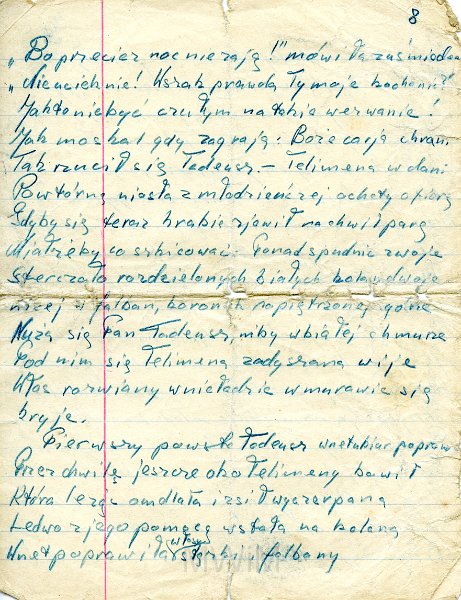 8
„Bo przecież noc nie zają!" mówiła
„Nie uciehnie! Wszak prawda Ty moje kochanie?"
Jak to nie być czułym na tokie werwanie!
Jak moskal gdy zagrają: Boże caria chrani
Tak rzucił się Tadeusz. – Telimena w dani
Powtórną niosła z młodzieńczej ochoty ofiarę
Gdyby się teraz hrabia zjawił na chwil parę
Miałżeby co szkicować: Ponad spudnic zwoje
Sterczało rozdzielonych białych kolan dwoje
niżej z falban, koronek napiętrzonej górze
Nuża się Pan Tadeusz, niby w białej chmurze
Pod nim się Telimena zadyszana wije
Włos rozwiany w nieładzie w murawie się
kryje.
Pierwszy powstał Tadeusz wnet ubiór poprawił
Przez chwilę jeszcze oko Telimeny bawił
Która leżąc omdlała i z sił wyczerpaną
Ledwo z jego pomocą wstała na kolana
Wnet poprawiła włosy i falbany